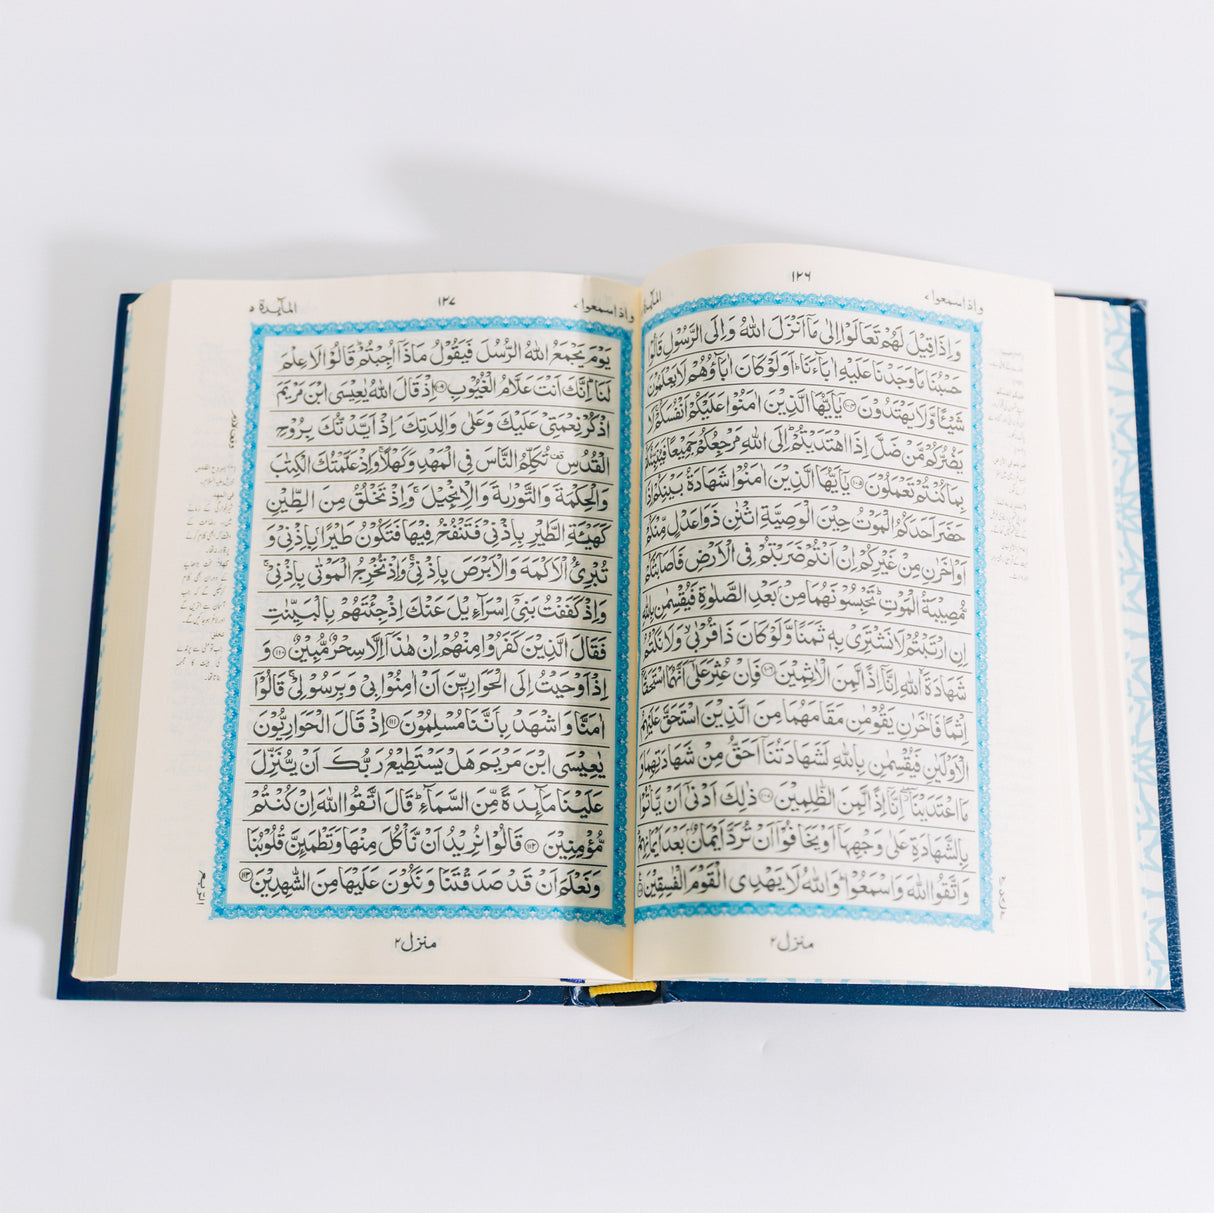 واذاسمعوا۷
۱۲۶
وَاِذَا قِيْلَ لَهُمْ تَعَالَوْا اِلٰى مَاۤ اَنْزَلَ اللّٰهُ وَاِلَى الرَّسُوْلِ قَالُوْا
حَسْبُنَا مَا وَجَدْنَا عَلَيْهِ اٰبَآءَنَا ؕ اَوَلَوْ كَانَ اٰبَآؤُهُمْ لَا يَعْلَمُوْنَ
شَيْـًٔا وَّلَا يَهْتَدُوْنَ ۝۱۰۴ يٰۤاَيُّهَا الَّذِيْنَ اٰمَنُوْا عَلَيْكُمْ اَنْفُسَكُمْ ۚ لَا
يَضُرُّكُمْ مَّنْ ضَلَّ اِذَا اهْتَدَيْتُمْ ؕ اِلَى اللّٰهِ مَرْجِعُكُمْ جَمِيْعًا فَيُنَبِّئُكُمْ
بِمَا كُنْتُمْ تَعْمَلُوْنَ ۝۱۰۵ يٰۤاَيُّهَا الَّذِيْنَ اٰمَنُوْا شَهَادَةُ بَيْنِكُمْ اِذَا
حَضَرَ اَحَدَكُمُ الْمَوْتُ حِيْنَ الْوَصِيَّةِ اثْنٰنِ ذَوَا عَدْلٍ مِّنْكُمْ
اَوْ اٰخَرٰنِ مِنْ غَيْرِكُمْ اِنْ اَنْتُمْ ضَرَبْتُمْ فِى الْاَرْضِ فَاَصَابَتْكُمْ
مُّصِيْبَةُ الْمَوْتِ ؕ تَحْبِسُوْنَهُمَا مِنْۢ بَعْدِ الصَّلٰوةِ فَيُقْسِمٰنِ بِاللّٰهِ
اِنِ ارْتَبْتُمْ لَا نَشْتَرِىْ بِهٖ ثَمَنًا وَّلَوْ كَانَ ذَا قُرْبٰى ۙ وَلَا نَكْتُمُ
شَهَادَةَ ۙ اللّٰهِ اِنَّاۤ اِذًا لَّمِنَ الْاٰثِمِيْنَ ۝۱۰۶ فَاِنْ عُثِرَ عَلٰۤى اَنَّهُمَا اسْتَحَقَّاۤ
اِثْمًا فَاٰخَرٰنِ يَقُوْمٰنِ مَقَامَهُمَا مِنَ الَّذِيْنَ اسْتَحَقَّ عَلَيْهِمُ
الْاَوْلَيٰنِ فَيُقْسِمٰنِ بِاللّٰهِ لَشَهَادَتُنَاۤ اَحَقُّ مِنْ شَهَادَتِهِمَا وَ
مَا اعْتَدَيْنَاۤ ۖ اِنَّاۤ اِذًا لَّمِنَ الظّٰلِمِيْنَ ۝۱۰۷ ذٰلِكَ اَدْنٰۤى اَنْ يَّاْتُوْا
بِالشَّهَادَةِ عَلٰى وَجْهِهَاۤ اَوْ يَخَافُوْۤا اَنْ تُرَدَّ اَيْمَانٌۢ بَعْدَ اَيْمَانِهِمْ ؕ
وَاتَّقُوا اللّٰهَ وَاسْمَعُوْا ؕ وَاللّٰهُ لَا يَهْدِى الْقَوْمَ الْفٰسِقِيْنَ ۝
منزل۲
واذاسمعوا۷
۱۲۷
المآىِٕدة ۵
يَوْمَ يَجْمَعُ اللّٰهُ الرُّسُلَ فَيَقُوْلُ مَاذَاۤ اُجِبْتُمْ ؕ قَالُوْا لَا عِلْمَ
لَنَا ؕ اِنَّكَ اَنْتَ عَلَّامُ الْغُيُوْبِ ۝۱۰۹ اِذْ قَالَ اللّٰهُ يٰعِيْسَى ابْنَ مَرْيَمَ
اذْكُرْ نِعْمَتِىْ عَلَيْكَ وَعَلٰى وَالِدَتِكَ ۘ اِذْ اَيَّدْتُّكَ بِرُوْحِ
الْقُدُسِ قف تُكَلِّمُ النَّاسَ فِى الْمَهْدِ وَكَهْلًا ۚ وَاِذْ عَلَّمْتُكَ الْكِتٰبَ
وَالْحِكْمَةَ وَالتَّوْرٰىةَ وَالْاِنْجِيْلَ ۚ وَاِذْ تَخْلُقُ مِنَ الطِّيْنِ
كَهَيْـَٔةِ الطَّيْرِ بِاِذْنِىْ فَتَنْفُخُ فِيْهَا فَتَكُوْنُ طَيْرًۢا بِاِذْنِىْ وَ
تُبْرِئُ الْاَكْمَهَ وَالْاَبْرَصَ بِاِذْنِىْ ۚ وَاِذْ تُخْرِجُ الْمَوْتٰى بِاِذْنِىْ ۚ
وَاِذْ كَفَفْتُ بَنِىْۤ اِسْرَآءِيْلَ عَنْكَ اِذْ جِئْتَهُمْ بِالْبَيِّنٰتِ
فَقَالَ الَّذِيْنَ كَفَرُوْا مِنْهُمْ اِنْ هٰذَاۤ اِلَّا سِحْرٌ مُّبِيْنٌ ۝۱۱۰ وَ
اِذْ اَوْحَيْتُ اِلَى الْحَوَارِيّٖنَ اَنْ اٰمِنُوْا بِىْ وَبِرَسُوْلِىْ ۚ قَالُوْۤا
اٰمَنَّا وَاشْهَدْ بِاَنَّنَا مُسْلِمُوْنَ ۝۱۱۱ اِذْ قَالَ الْحَوَارِيُّوْنَ
يٰعِيْسَى ابْنَ مَرْيَمَ هَلْ يَسْتَطِيْعُ رَبُّكَ اَنْ يُّنَزِّلَ
عَلَيْنَا مَآىِٕدَةً مِّنَ السَّمَآءِ ؕ قَالَ اتَّقُوا اللّٰهَ اِنْ كُنْتُمْ
مُّؤْمِنِيْنَ ۝۱۱۲ قَالُوْا نُرِيْدُ اَنْ نَّاْكُلَ مِنْهَا وَتَطْمَىِٕنَّ قُلُوْبُنَا
وَنَعْلَمَ اَنْ قَدْ صَدَقْتَنَا وَنَكُوْنَ عَلَيْهَا مِنَ الشّٰهِدِيْنَ ۝۱۱۳
منزل۲